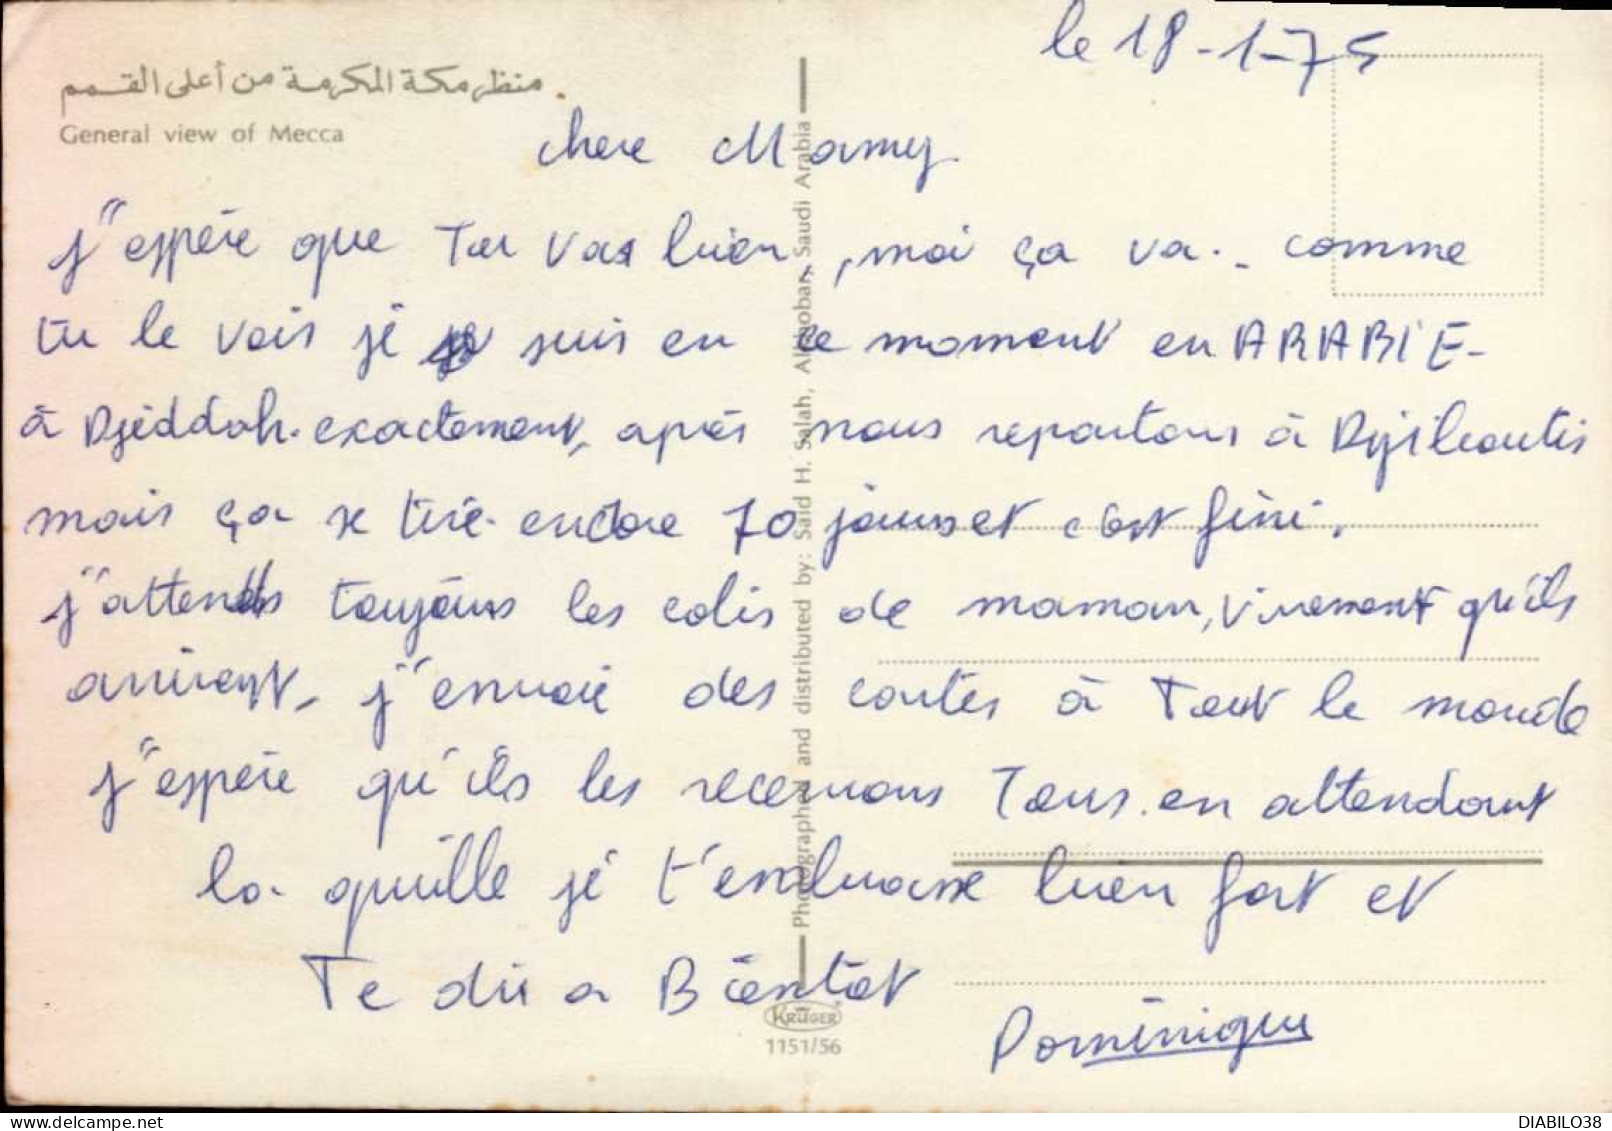 le 18-1-75
منظر مكة المكرمة من أعلى القمم .
General view of Mecca
chere Mamy
j'espère que Tu vas bien, moi ça va. comme
tu le vois je suis en ce moment en ARABIE-
à Djeddah. exactement, après nous repartons à Djiboutis
mais ça se tire. encore 70 jours et c'est fini.
j'attends toujours les colis de maman, vivement qu'ils
arrivent, j'envoie des cartes à Tout le monde
j'espère qu'ils les recevrons Tous. en attendant
la quille je t'embrasse bien fort et
Te dis a Bientôt
Dominique
Photographed and distributed by: Said H. Salah, Alkhobar, Saudi Arabia
KRÜGER
1151/56
DIABILO38